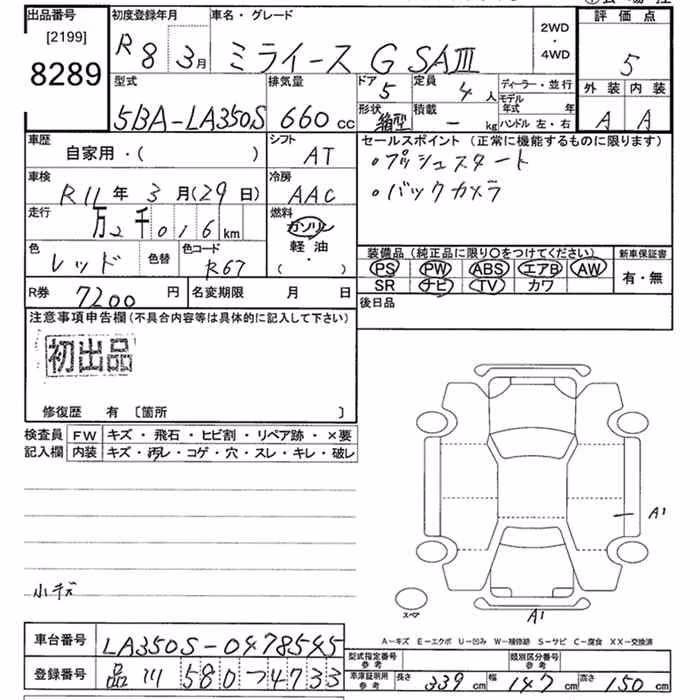 出品番号 初度登録年月 車名・グレード 2WD・4WD 評価点
[2199] R8 3月 ミライース G SAⅢ 5
8289 型式 排気量 ドア 5 定員 4人 ディーラー・並行 外装 内装
5BA-LA350S 660cc 形状 箱型 積載 - kg モデル年式 年 A A
ハンドル 左・右
車歴 自家用・( ) シフト AT セールスポイント (正常に機能するものに限ります)
・プッシュスタート
車検 R11年 3月(29日) 冷房 AAC ・バックカメラ
走行 万2千016km 燃料 ガソリン
軽油
( )
色 レッド 色替 色コード R67 装備品 (純正品に限り○をつけてください) 新車保証書
PS PW ABS エアB AW 有・無
R券 7200円 名変期限 月 日 SR ナビ TV カワ
注意事項申告欄(不具合内容等は具体的に記入して下さい) 後日品
初出品
修復歴 有 〔箇所 〕
検査員 FW キズ・飛石・ヒビ割・リペア跡・×要
記入欄 内装 キズ・汚レ・コゲ・穴・スレ・キレ・破レ
A1
小キズ
スペア
A1
A-キズ E-エクボ U-凹み W-補修跡 S-サビ C-腐食 XX-交換済
車台番号 LA350S-0478545
型式指定番号 参考 類別区分番号 参考
登録番号 品川 580 つ 4733 車庫証明用 参考 長さ 339cm 幅 147cm 高さ 150cm